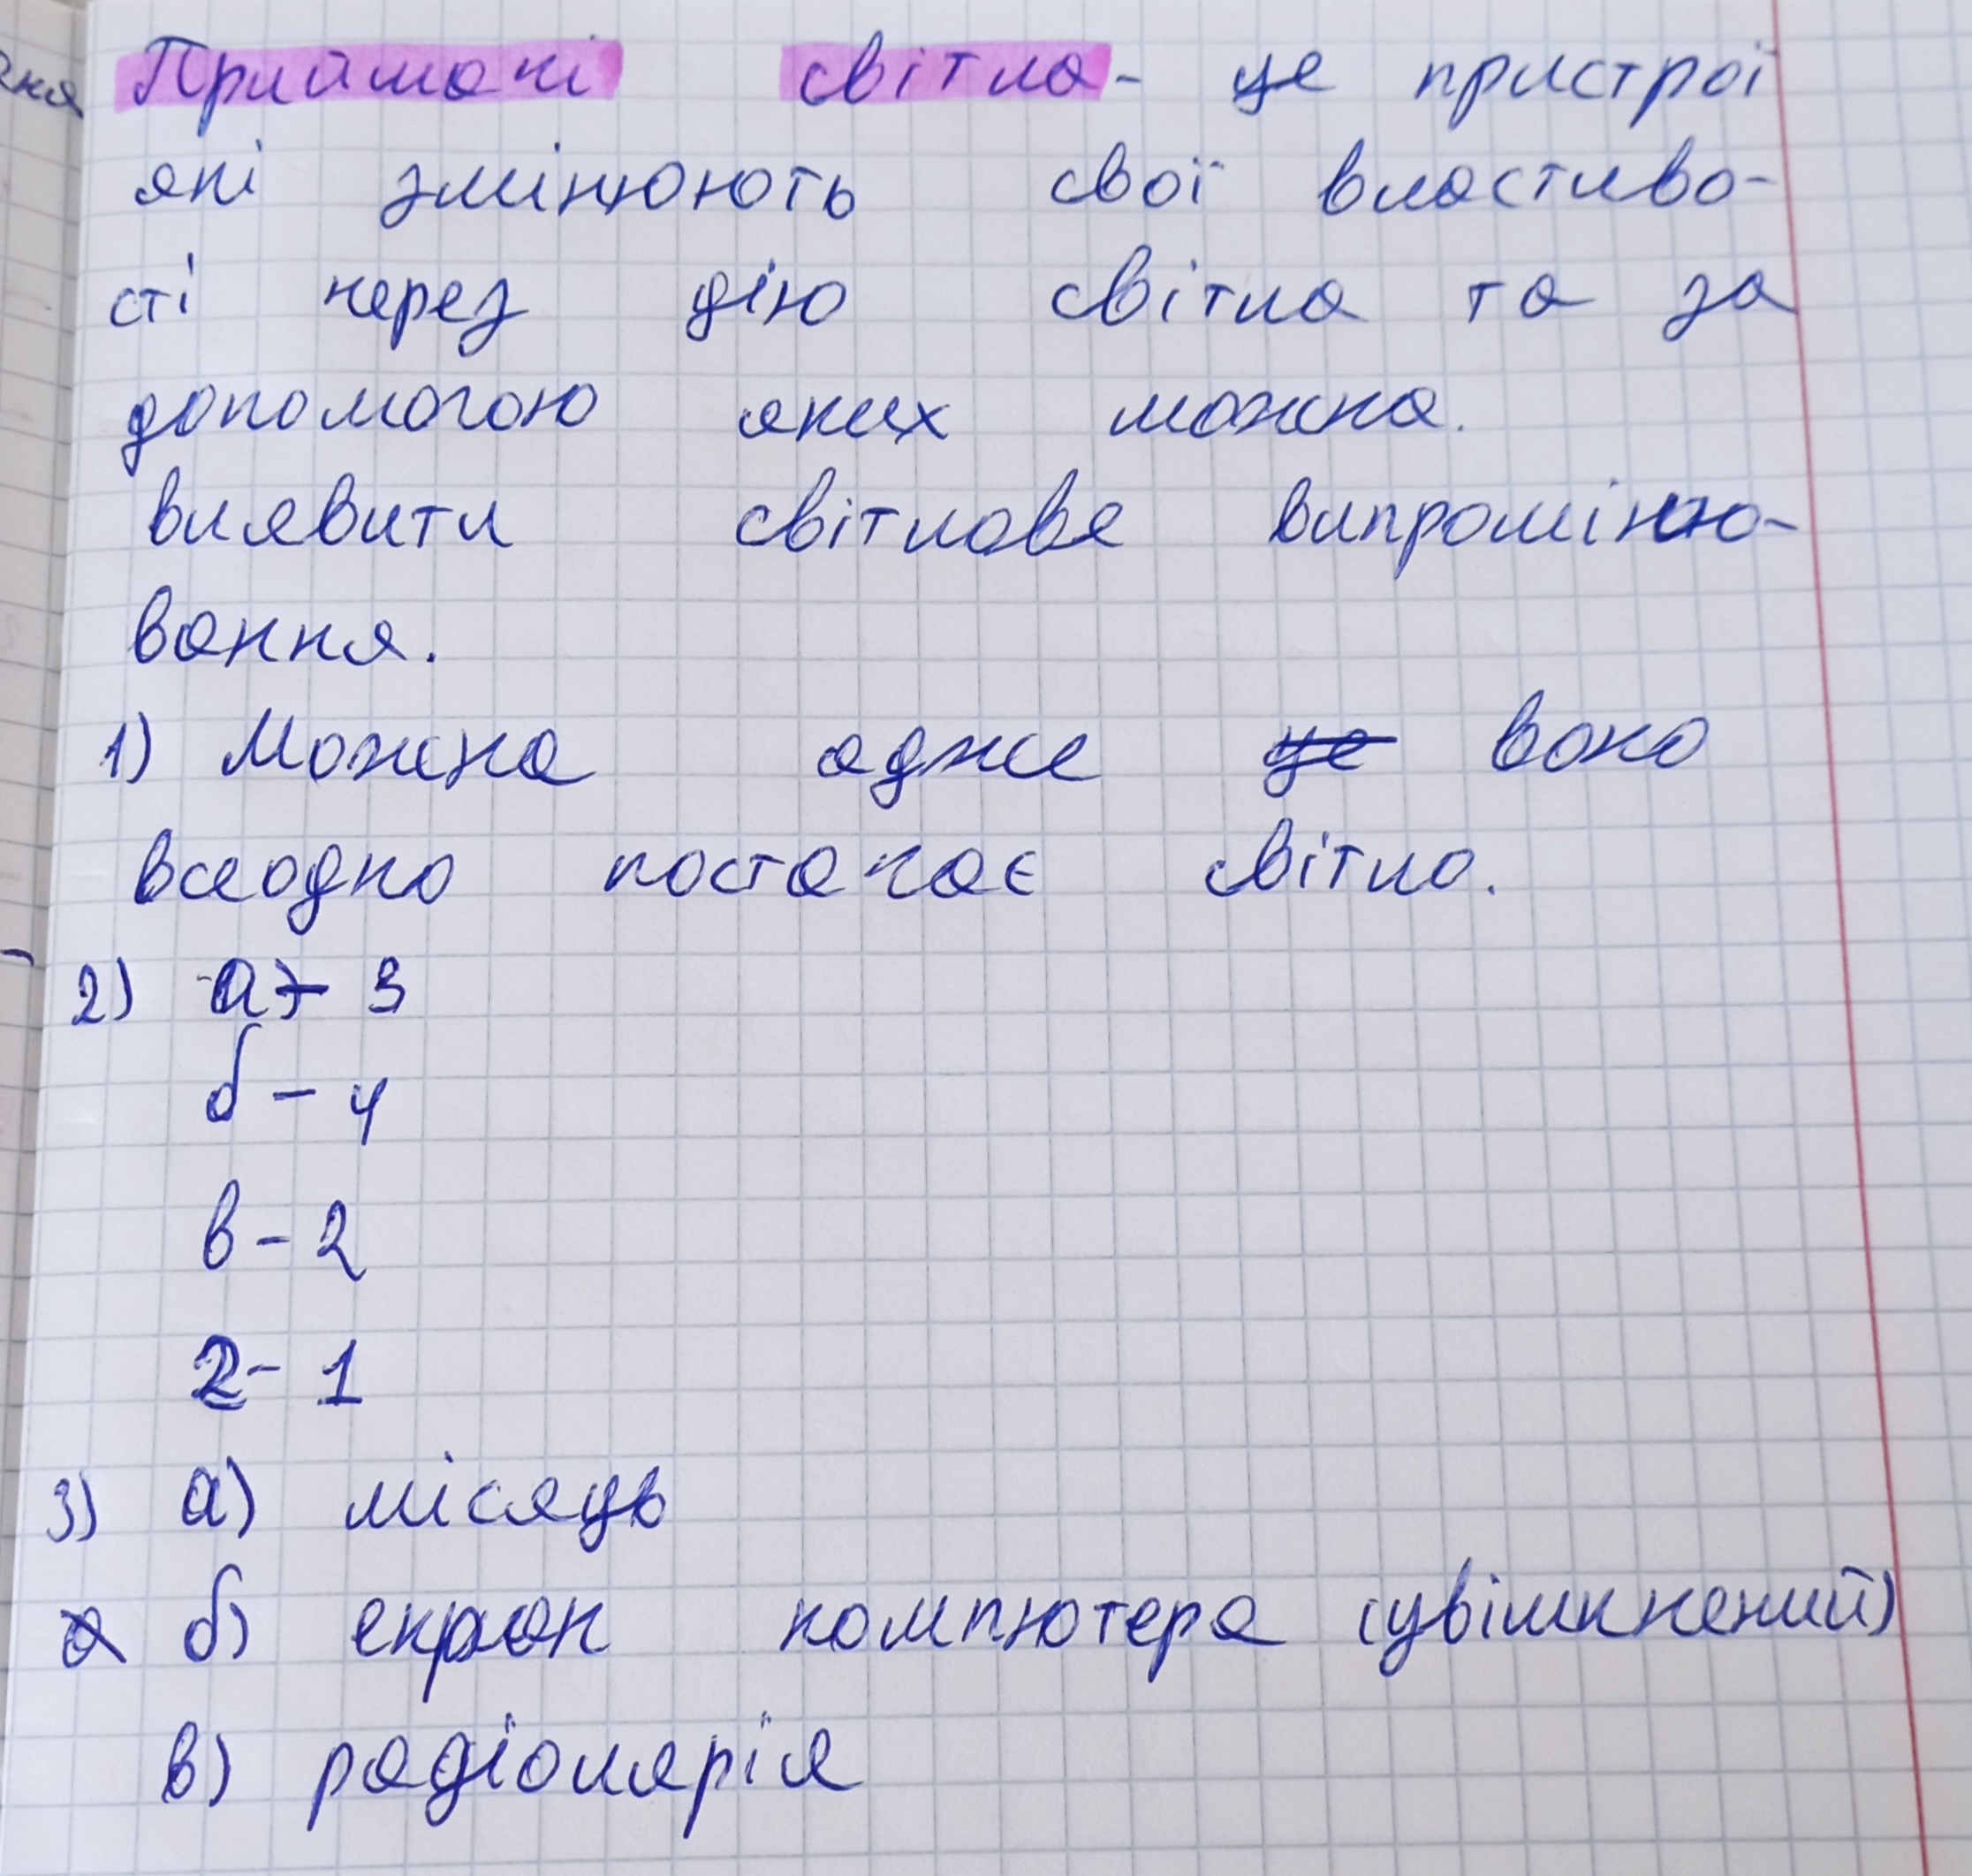 Приймачі світла - це пристрої
які змінюють свої властиво-
сті через дію світла та за
допомогою яких можна.
виявити світлове випроміню-
вання.
1) Можна адже це воно
всеодно постачає світло.
2) а) - 3
б - 4
в - 2
2 - 1
3) а) місяць
а б) екран компютера (увімкнений)
в) радіолярія